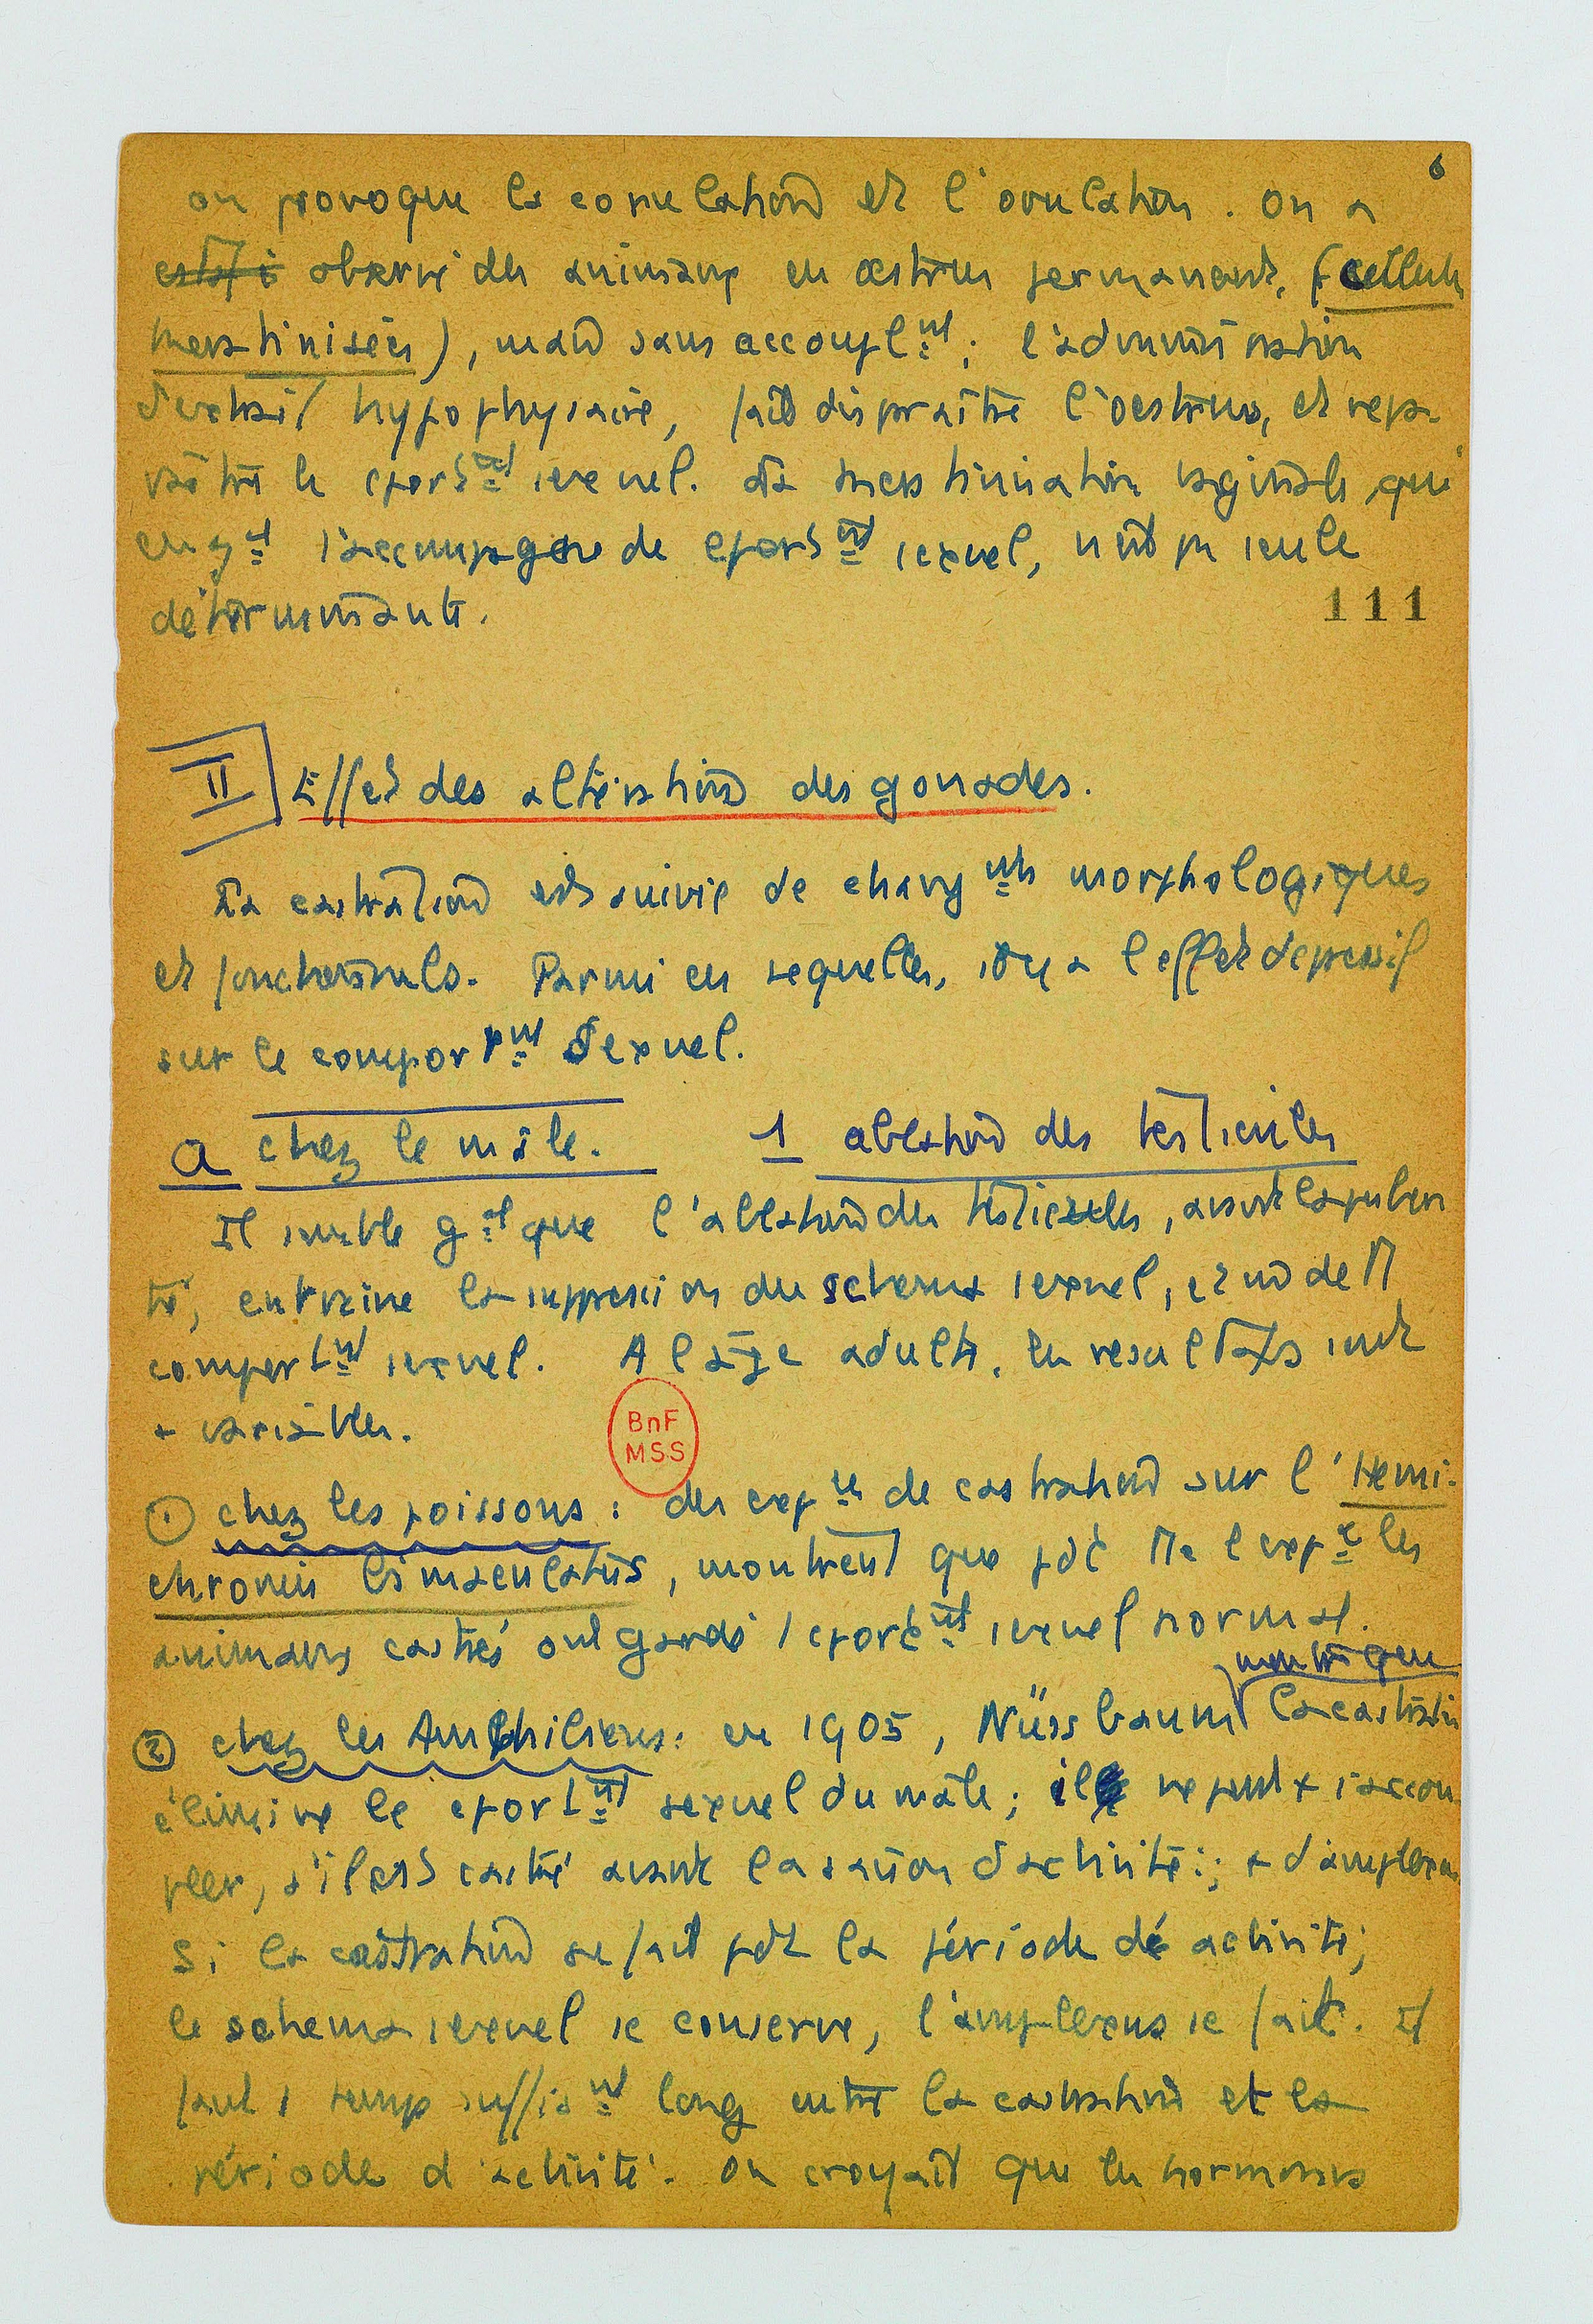 6
on provoque la copulation et l'ovulation. On a
observé des animaux en œstrus permanent, (cellules
kératinisées), mais sans accoupl nt; l'administration
d'extrait hypophysaire, fait disparaître l'oestrus, et repa-
raître le cport nt sexuel. La kératinisation vaginale, qui
en gal s'accompagne de cport nt sexuel, n'est pas seule
déterminante.
111
II Effet des altérations des gonades.
La castration est suivie de chang nts morphologiques
et fonctionnels. Parmi ces sequelles, il y a l'effet depressif
sur le comport nt Sexuel.
a chez le mâle. 1 ablation des testicules
Il semble gal que l'ablation des testicules, avant la puber
té, entraine la suppression du schema sexuel, et non de
comport nt sexuel. A l'âge adulte, les resultats sont
+ variables.
BnF
MSS
① chez les poissons : des exp ces de castration sur l'Hemi-
chromis bimaculatus, montrent que pdt l'exp ce les
animaux castrés ont gardé 1 cport nt sexuel normal.
montre que
② chez les Amphibiens: en 1905, Nüssbaum la castration
élimine le cport nt sexuel du mâle; il ne peut + s'accou
pler, s'il est castré avant la saison d'activité; + d'amplexus
Si la castration se fait pdt la période de activité;
le schema sexuel se conserve, l'amplexus se fait. Il
faut 1 temps suffisa nt long entre la castration et la
période d'activité. On croyait que les hormones